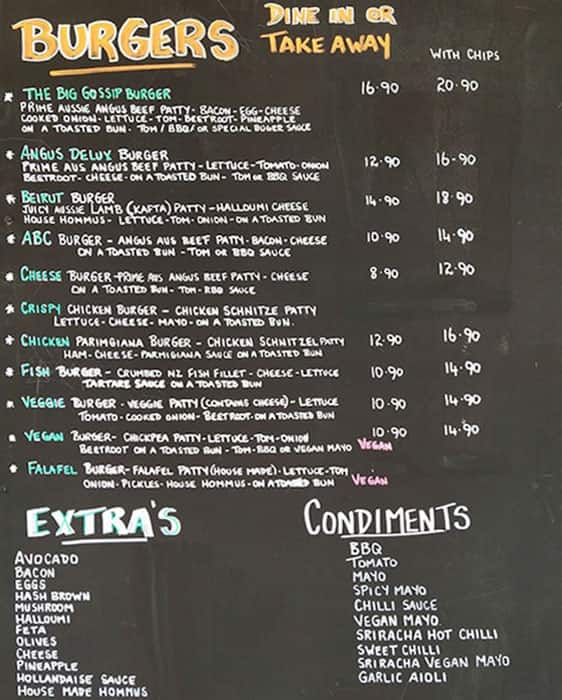 BURGERS DINE IN OR
TAKE AWAY
WITH CHIPS
* THE BIG GOSSIP BURGER 16.90 20.90
PRIME AUSSIE ANGUS BEEF PATTY - BACON - EGG - CHEESE
COOKED ONION - LETTUCE - TOM - BEETROOT - PINEAPPLE
ON A TOASTED BUN - TOM / BBQ / OR SPECIAL BUGER SAUCE
* ANGUS DELUX BURGER 12.90 16.90
PRIME AUS ANGUS BEEF PATTY - LETTUCE - TOMATO - ONION
BEETROOT - CHEESE - ON A TOASTED BUN - TOM OR BBQ SAUCE
* BEIRUT BURGER 14.90 18.90
JUICY AUSSIE LAMB (KAFTA) PATTY - HALLOUMI CHEESE
HOUSE HOMMUS - LETTUCE - TOM - ONION - ON A TOASTED BUN
* ABC BURGER - ANGUS AUS BEEF PATTY - BACON - CHEESE 10.90 14.90
ON A TOASTED BUN - TOM OR BBQ SAUCE
* CHEESE BURGER - PRIME AUS ANGUS BEEF PATTY - CHEESE 8.90 12.90
ON A TOASTED BUN - TOM - BBQ SAUCE
* CRISPY CHICKEN BURGER - CHICKEN SCHNITZE PATTY
LETTUCE - CHEESE - MAYO - ON A TOASTED BUN.
* CHICKEN PARIMGIANA BURGER - CHICKEN SCHNITZEL PATTY 12.90 16.90
HAM - CHEESE - PARMIGIANA SAUCE ON A TOASTED BUN
* FISH BURGER - CRUMBED NZ FISH FILLET - CHEESE - LETTUCE 10.90 14.90
TARTARE SAUCE ON A TOASTED BUN
* VEGGIE BURGER - VEGGIE PATTY (CONTAINS CHEESE) - LETTUCE 10.90 14.90
TOMATO - COOKED ONION - BEETROOT - ON A TOASTED BUN
* VEGAN BURGER - CHICKPEA PATTY - LETTUCE - TOM - ONION 10.90 14.90
BEETROOT ON A TOASTED BUN - TOM - BBQ OR VEGAN MAYO VEGAN
* FALAFEL BURGER - FALAFEL PATTY (HOUSE MADE) - LETTUCE - TOM
ONION - PICKLES - HOUSE HOMMUS - ON A TOASTED BUN VEGAN
EXTRA'S
AVOCADO
BACON
EGGS
HASH BROWN
MUSHROOM
HALLOUMI
FETA
OLIVES
CHEESE
PINEAPPLE
HOLLANDAISE SAUCE
HOUSE MADE HOMMUS
CONDIMENTS
BBQ
TOMATO
MAYO
SPICY MAYO
CHILLI SAUCE
VEGAN MAYO
SRIRACHA HOT CHILLI
SWEET CHILLI
SRIRACHA VEGAN MAYO
GARLIC AIOLI